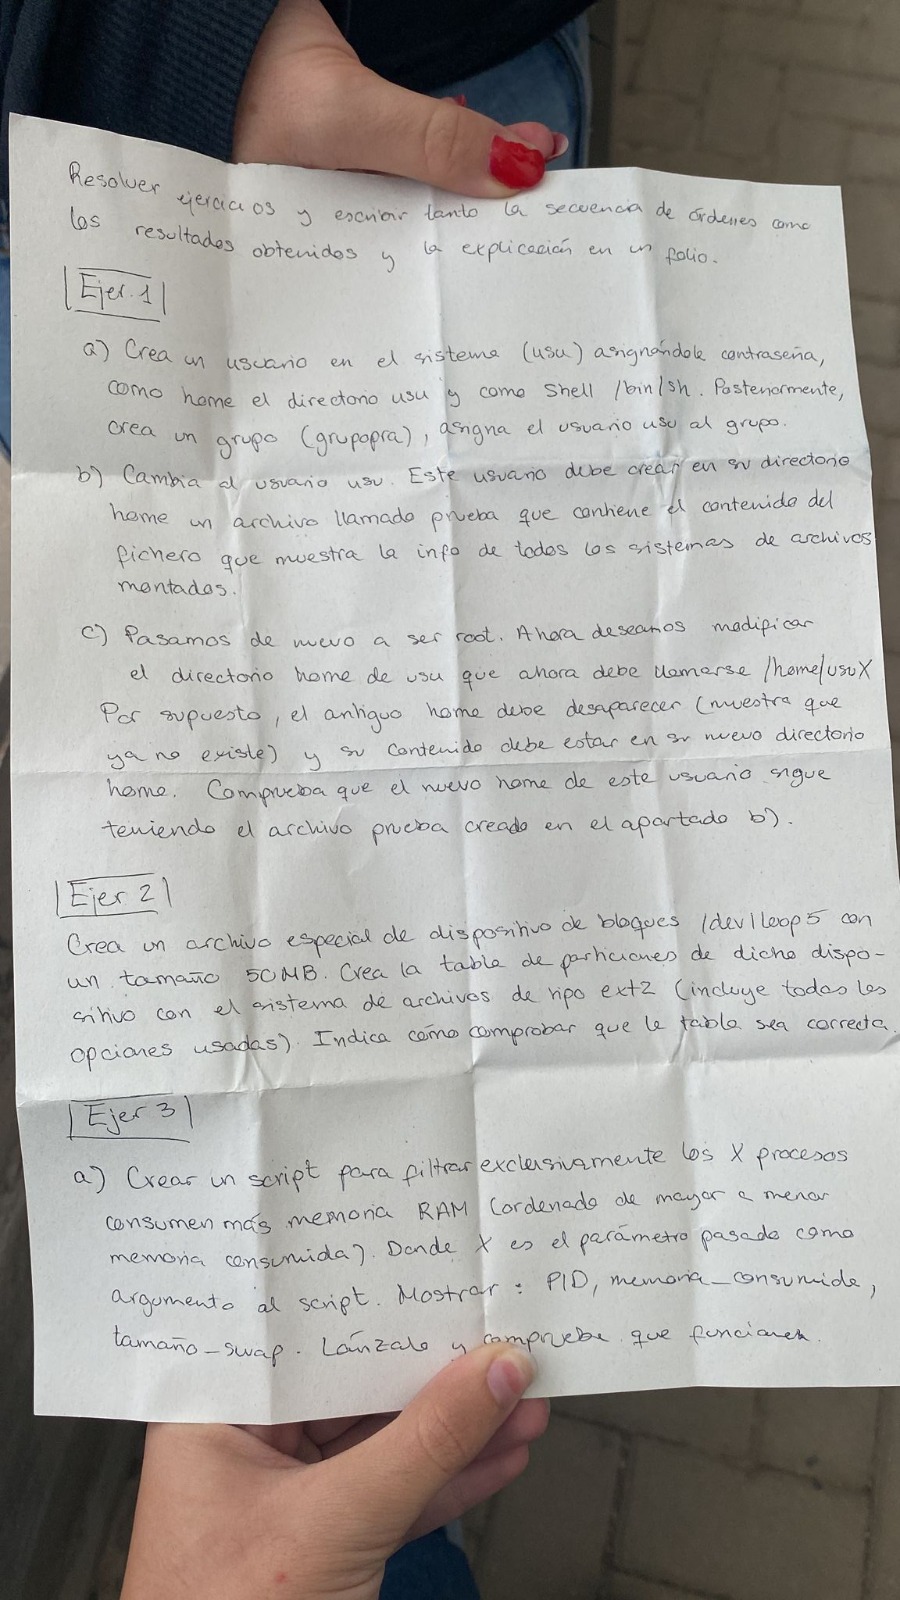 Resolver ejercicios y escribir tanto la secuencia de órdenes como
los resultados obtenidos y la explicación en un folio.
Ejer. 1
a) Crea un usuario en el sistema (usu) asignándole contraseña,
como home el directorio usu y como Shell /bin/sh. Posteriormente,
crea un grupo (grupopra), asigna el usuario usu al grupo.
b) Cambia al usuario usu. Este usuario debe crear en su directorio
home un archivo llamado prueba que contiene el contenido del
fichero que muestra la info de todos los sistemas de archivos
montados.
c) Pasamos de nuevo a ser root. Ahora deseamos modificar
el directorio home de usu que ahora debe llamarse /home/usuX
Por supuesto, el antiguo home debe desaparecer (muestra que
ya no existe) y su contenido debe estar en su nuevo directorio
home. Comprueba que el nuevo home de este usuario sigue
teniendo el archivo prueba creado en el apartado b).
Ejer 2
Crea un archivo especial de dispositivo de bloques /dev/loop5 con
un tamaño 50MB. Crea la tabla de particiones de dicho dispo-
sitivo con el sistema de archivos de tipo ext2 (incluye todas las
opciones usadas). Indica cómo comprobar que la tabla sea correcta.
Ejer 3
a) Crear un script para filtrar exclusivamente los X procesos
consumen más memoria RAM (ordenado de mayor a menor
memoria consumida). Donde X es el parámetro pasado como
argumento al script. Mostrar: PID, memoria_consumida,
tamaño_swap. Lánzalo y comprueba que funciona.